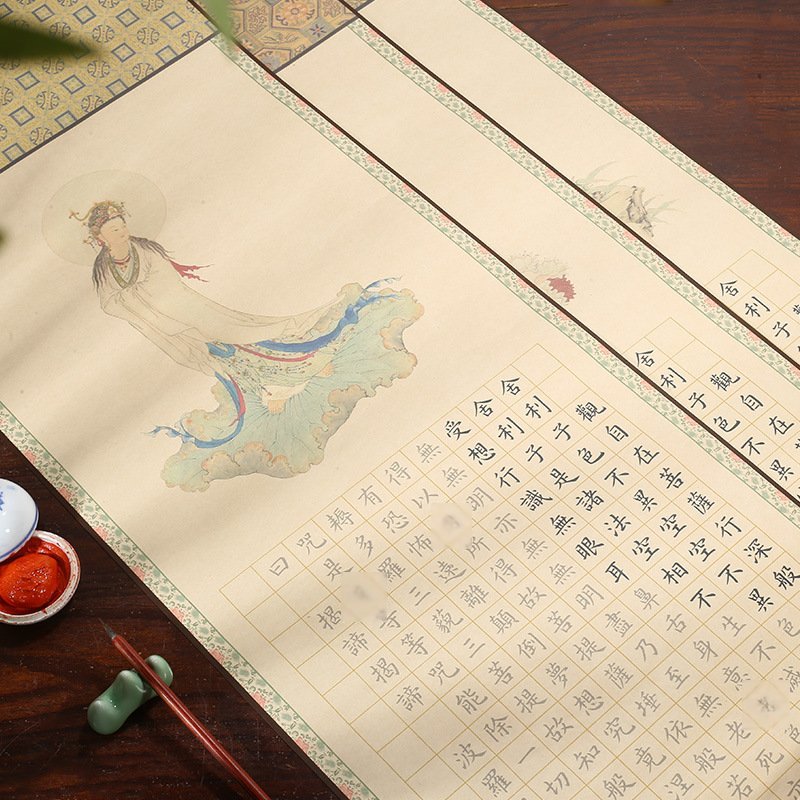 舍利子
觀自在
舍利子色不異
觀自在菩薩行深般
舍利子色不異空空不異色
舍利子是諸法空相不生不滅
受想行識無眼耳鼻舌身意色
無無明亦無無明盡乃至無老死亦
得以所得故菩提薩埵依般若
有恐怖遠離顛倒夢想究竟涅
耨多羅三藐三菩提故知般
咒是等等咒能除一切
曰揭諦揭諦波羅